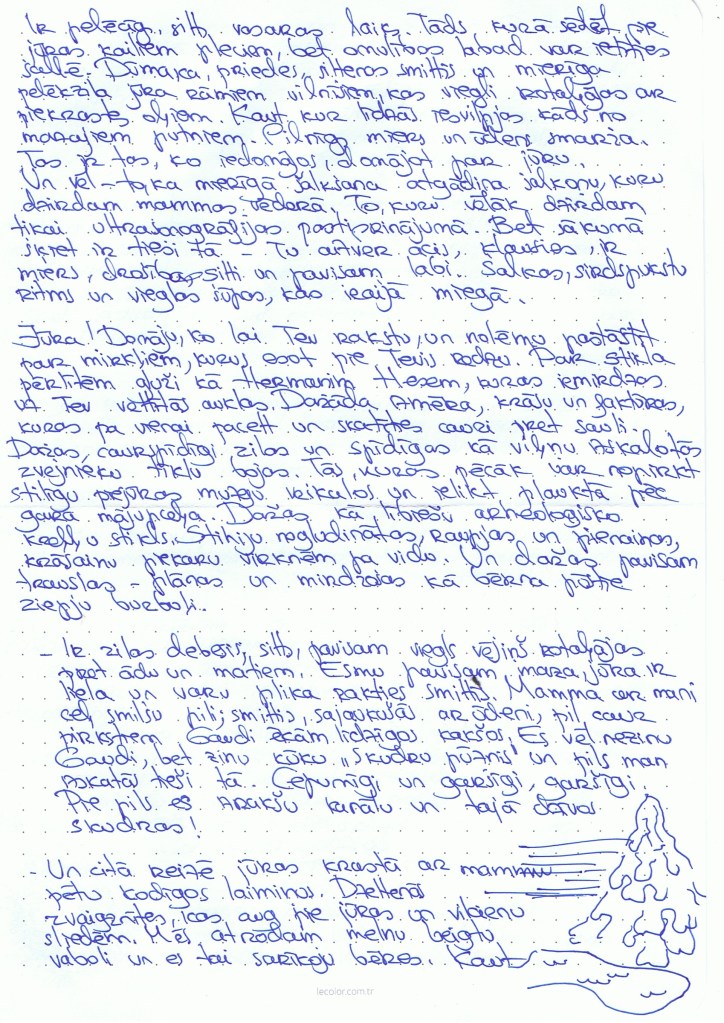 Ir pelēcīgi, silts vasaras laiks. Tāds, kurā sēdēt pie
jūras kailiem pleciem, bet omulības labad var ietīties
šallē. Dūmaka, priedes, siltenas smiltis un mierīga
pelēkzila jūra rāmiem vilnīšiem, kas viegli rotaļājas ar
piekrastes oļiem. Kaut kur tīdinās iesvilpjas kāds no
mazajiem putniem. Pilnīgs miers un ūdens smarža.
Tas ir tas, ko iedomājos, domājot par jūru.
Un vēl – tā, ka mierīgā šalkšana atgādina šalkoņu, kuru
dzirdam mammas vēderā. To, kuru vēlāk dzirdam
tikai ultrasonogrāfijas pastiprinājumā. Bet sākumā
šķiet ir tieši tā – Tu atver acis, klausies, ir
miers, drošības, silti un pavisam labi. Šalkas, sirdspukstu
ritms un vieglas šūpas, kas ieaijā miegā.
Jūra! Domāju, ko lai Tev rakstu, un nolēmu pastāstīt
par mirkļiem, kurus esot pie Tevis rodu. Par stikla
pērlītēm gluži kā Hermanim Hesem, kuras iemirdzas
un Tev vērtas auklas. Dažāda izmēra, krāsu un faktūras,
kuras pa vienai pacelt un skatīties cauri pret sauli.
Dažas, caurspīdīgi zilas un spīdīgas kā viļņu izskalotās
zvejnieku tīklu bojas. Tās, kuras pēcāk var nopirkt
stilīgu pejūras mūžgu veikalos un ielikt plauktā pēc
garā mājupceļa. Dažas kā lībiešu arheoloģisko
krellu stikls. Stihiju nogludinātas, raupjas un pienainas,
krāsainu piekaru virknēm pa vidu. Un dažas pavisam
trauslas – plānas un mirdzošas kā bērna pūstie
ziepju burbuļi.
- Ir zilas debesis, silts, pavisam viegls vējiņš rotaļājas
pret ādu un matiem. Esmu pavisam maza, jūra ir
liela un varu plika rakties smiltīs. Mamma ar mani
ceļ smilšu pili, smiltis, sajaukušās ar ūdeni, pil caur
pirkstiem Gaudi ēkām līdzīgos kakšos. Es vēl nezinu
Gaudi, bet zinu kūku „Skudru pūznis" un pils man
izskatās tieši tā. Cepumīgi un garšīgi, garšīgi.
Pie pils es izrakšu kanālu un tajā dzīvos
skudras!
- Un citā reizē jūras krastā ar mammu
pētu kodīgos laimiņus. Dzeltenās
zvaigznītes, kas aug pie jūras un vilcienu
sliedēm. Mēs atrodam melnu beigtu
vaboli un es tai sarīkoju bēres. Kaut
lecolor.com.tr